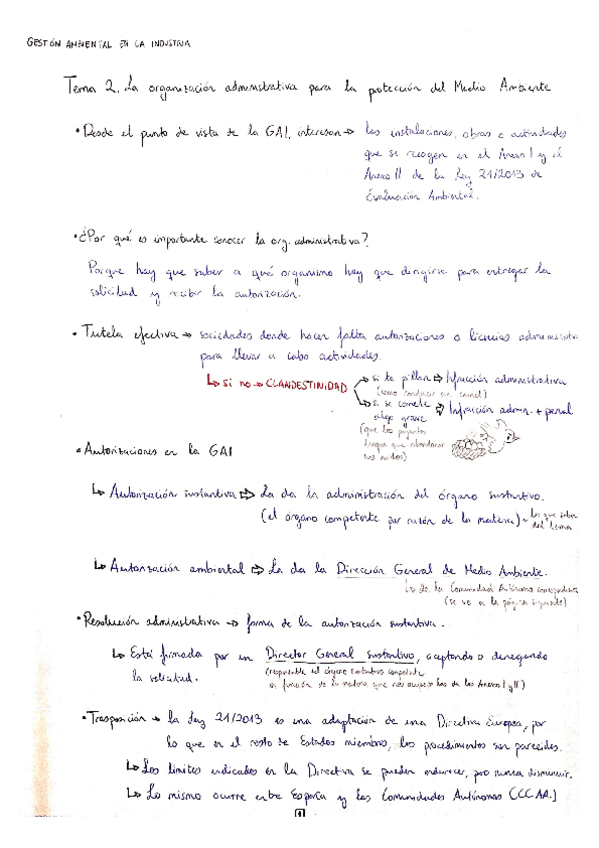 GESTIÓN AMBIENTAL EN LA INDUSTRIA
Tema 2. La organización administrativa para la protección del Medio Ambiente
• Desde el punto de vista de la GAI, interesan → las instalaciones, obras o actividades
que se recogen en el Anexo I y el
Anexo II de la Ley 21/2013 de
Evaluación Ambiental.
• ¿Por qué es importante conocer la org. administrativa?
Porque hay que saber a qué organismo hay que dirigirse para entregar la
solicitud y recibir la autorización.
• Tutela efectiva → sociedades donde hacen falta autorizaciones o licencias administrativa
para llevar a cabo actividades.
↳ si no → CLANDESTINIDAD
si te pillan ⇨ Infracción administrativa
(como conducir sin carnet)
si se comete ⇨ Infracción admin. + penal
algo grave
(que los pajaritos
tengan que abandonar
sus nidos)
• Autorizaciones en la GAI
↳ Autorización sustantiva ⇨ La da la administración del órgano sustantivo.
(el órgano competente por razón de la materia) → los que saben
del tema
↳ Autorización ambiental ⇨ La da la Dirección General de Medio Ambiente.
↳ de la Comunidad Autónoma correspondiente
(se ve en la página siguiente)
• Resolución administrativa → forma de la autorización sustantiva.
↳ Está firmada por un Director General sustantivo, aceptando o denegando
la solicitud.
(responsable del órgano sustantivo competente
en función de la materia que nos ocupe → las de los Anexos I y II)
• Trasposición → la Ley 21/2013 es una adaptación de una Directiva Europea, por
lo que en el resto de Estados miembros, los procedimientos son parecidos.
↳ Los límites indicados en la Directiva se pueden endurecer, pero nunca disminuir.
↳ Lo mismo ocurre entre España y las Comunidades Autónomas (CCAA.]
1